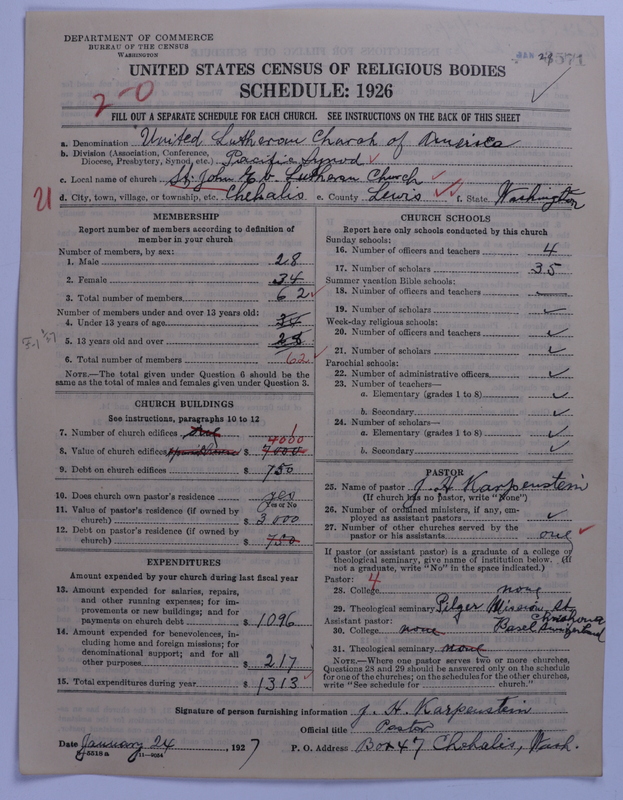 DEPARTMENT OF COMMERCE
BUREAU OF THE CENSUS
WASHINGTON
UNITED STATES CENSUS OF RELIGIOUS BODIES
SCHEDULE: 1926
2-0
FILL OUT A SEPARATE SCHEDULE FOR EACH CHURCH. SEE INSTRUCTIONS ON THE BACK OF THIS SHEET
a. Denomination United Lutheran Church of America
b. Division (Association, Conference, Diocese, Presbytery, Synod, etc.) Pacific Synod
c. Local name of church St. John Ev. Lutheran Church
d. City, town, village, or township, etc. Chehalis e. County Lewis f. State Washington
MEMBERSHIP
Report number of members according to definition of
member in your church
Number of members, by sex:
1. Male 28
2. Female 34
3. Total number of members 62
Number of members under and over 13 years old:
4. Under 13 years of age 34
5. 13 years old and over 28
6. Total number of members 62
NOTE.—The total given under Question 6 should be the
same as the total of males and females given under Question 3.
CHURCH BUILDINGS
See instructions, paragraphs 10 to 12
7. Number of church edifices 1
8. Value of church edifices $ 7000 4000
9. Debt on church edifices $ 750
10. Does church own pastor's residence yes
Yes or No
11. Value of pastor's residence (if owned by
church) $ 3000
12. Debt on pastor's residence (if owned by
church) $ 750
EXPENDITURES
Amount expended by your church during last fiscal year
13. Amount expended for salaries, repairs,
and other running expenses; for im-
provements or new buildings; and for
payments on church debt $ 1096
14. Amount expended for benevolences, in-
cluding home and foreign missions; for
denominational support; and for all
other purposes $ 217
15. Total expenditures during year $ 1313
CHURCH SCHOOLS
Report here only schools conducted by this church
Sunday schools:
16. Number of officers and teachers 4
17. Number of scholars 35
Summer vacation Bible schools:
18. Number of officers and teachers
19. Number of scholars
Week-day religious schools:
20. Number of officers and teachers
21. Number of scholars
Parochial schools:
22. Number of administrative officers
23. Number of teachers—
a. Elementary (grades 1 to 8)
b. Secondary
24. Number of scholars—
a. Elementary (grades 1 to 8)
b. Secondary
PASTOR
25. Name of pastor J. H. Karpenstein
(If church has no pastor, write "None")
26. Number of ordained ministers, if any, em-
ployed as assistant pastors
27. Number of other churches served by the
pastor or his assistants one
If pastor (or assistant pastor) is a graduate of a college or
theological seminary, give name of institution below. (If
not a graduate, write "No" in the space indicated.)
Pastor: 4
28. College none
29. Theological seminary Pilger Mission, St. Chrishona
Assistant pastor: Basel Switzerland
30. College none
31. Theological seminary none
NOTE.—Where one pastor serves two or more churches,
Questions 28 and 29 should be answered only on the schedule
for one of the churches; on the schedules for the other churches,
write "See schedule for church."
Signature of person furnishing information J. H. Karpenstein
Official title Pastor
Date January 24, 1927 P. O. Address Box 47 Chehalis, Wash.
8-5518a 11-9054